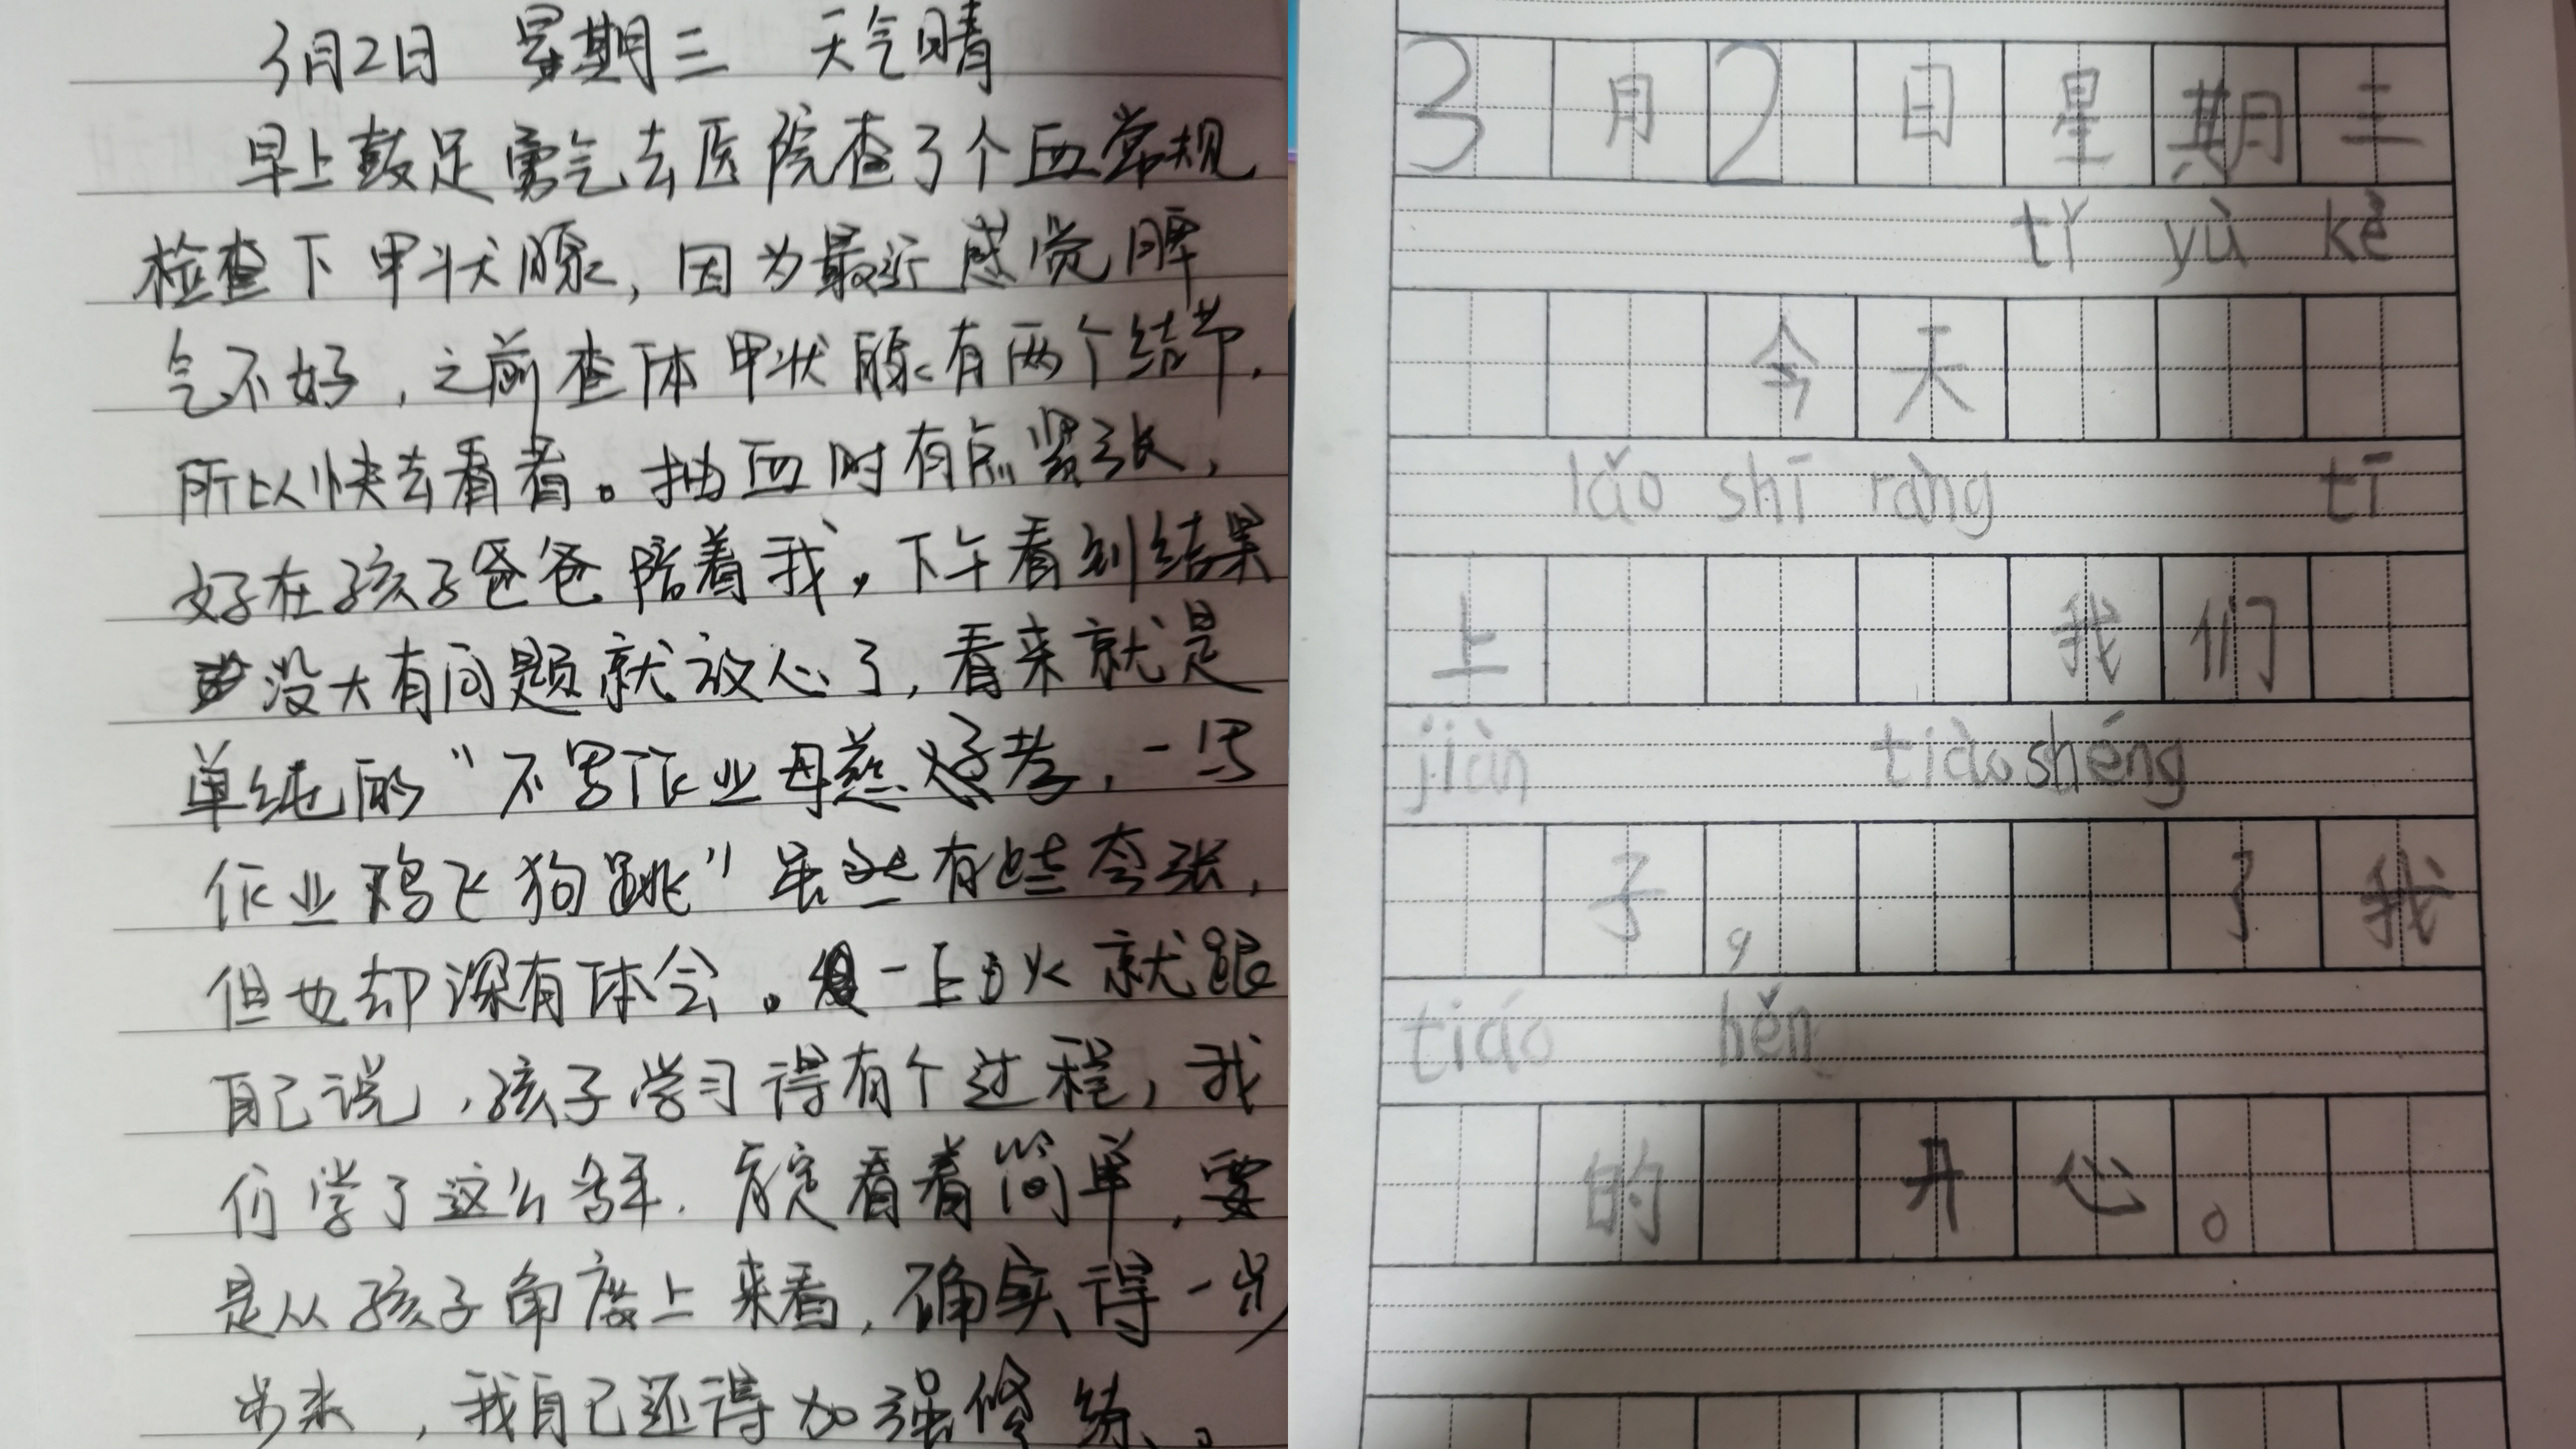 3月2日 星期三 天气晴
早上鼓足勇气去医院查了个血常规
检查下甲状腺,因为最近感觉脾
气不好,之前查体甲状腺有两个结节,
所以快去看看。抽血时有点紧张,
好在孩子爸爸陪着我,下午看到结果
没大有问题就放心了,看来就是
单纯的“不写作业母慈子孝,一写
作业鸡飞狗跳”虽然有些夸张,
但也却深有体会。一上火就跟
自己说,孩子学习得有个过程,我
们学了这么多年,肯定看着简单,要
是从孩子角度上来看,确实得一步
步来,我自己还得加强修练。
3月2日星期三
tǐ yù kè
今天
lǎo shī ràng tī
上 我们
jiàn tiào shéng
子, 了我
tiáo hěn
的 开心。